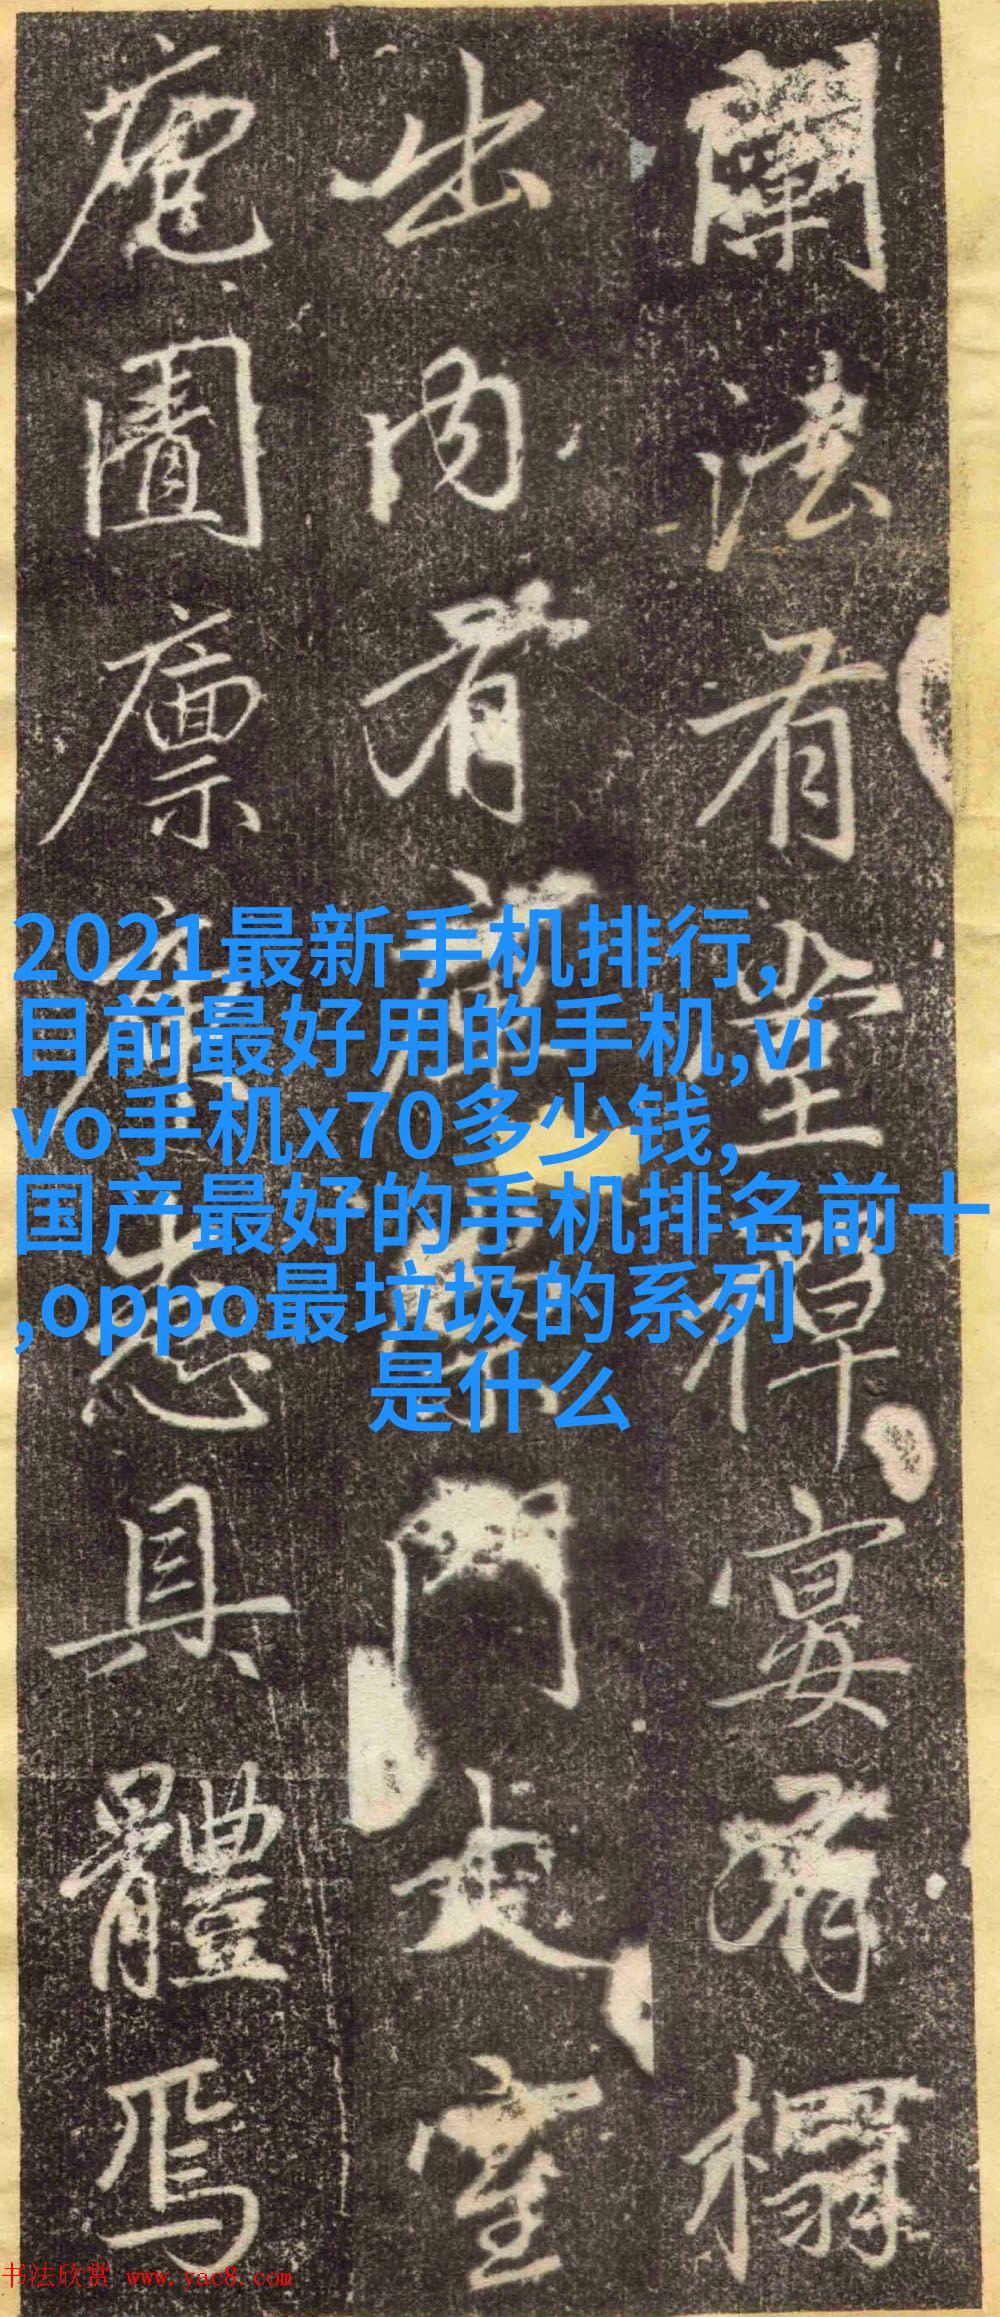 闡法有堂禪宴有榻
出內有門室
庖圊廩廄悉具體焉
2021最新手机排行,
目前最好用的手机,vi
vo手机x70多少钱,
国产最好的手机排名前十
,oppo最垃圾的系列
是什么
书法欣赏 www.yac8.com